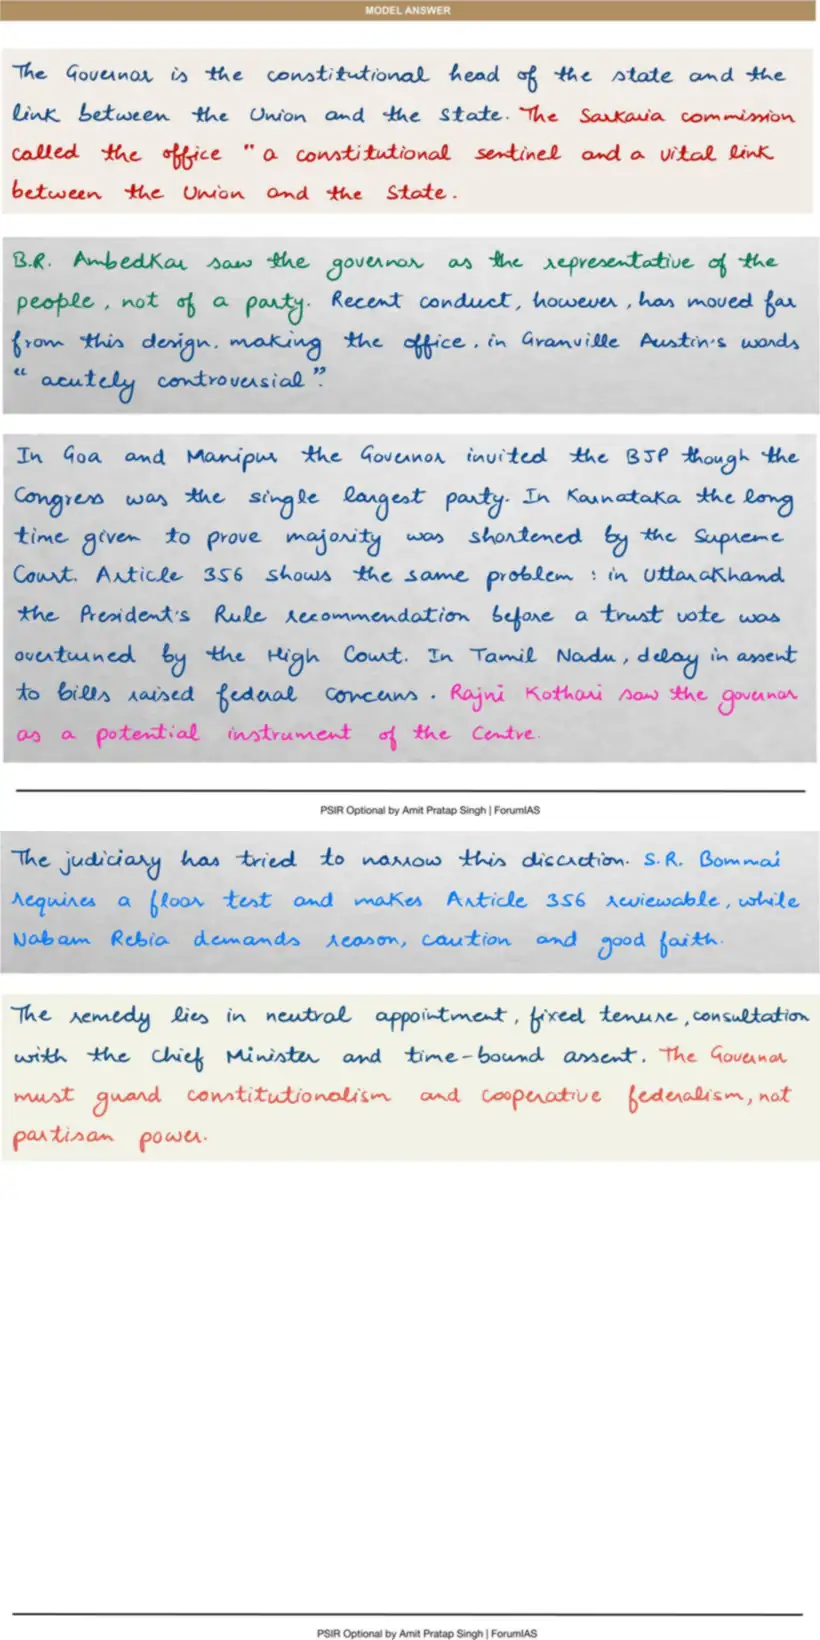 MODEL ANSWER
The Governor is the constitutional head of the state and the
link between the Union and the State. The Sarkaria commission
called the office " a constitutional sentinel and a vital link
between the Union and the State.
B.R. Ambedkar saw the governor as the representative of the
people, not of a party. Recent conduct, however, has moved far
from this design, making the office, in Granville Austin's words
" acutely controversial".
In Goa and Manipur the Governor invited the BJP though the
Congress was the single largest party. In Karnataka the long
time given to prove majority was shortened by the Supreme
Court. Article 356 shows the same problem : in Uttarakhand
the President's Rule recommendation before a trust vote was
overturned by the High Court. In Tamil Nadu, delay in assent
to bills raised federal concerns. Rajni Kothari saw the governor
as a potential instrument of the Centre.
PSIR Optional by Amit Pratap Singh | ForumIAS
The judiciary has tried to narrow this discretion. S.R. Bommai
requires a floor test and makes Article 356 reviewable, while
Nabam Rebia demands reason, caution and good faith.
The remedy lies in neutral appointment, fixed tenure, consultation
with the Chief Minister and time-bound assent. The Governor
must guard constitutionalism and cooperative federalism, not
partisan power.
PSIR Optional by Amit Pratap Singh | ForumIAS